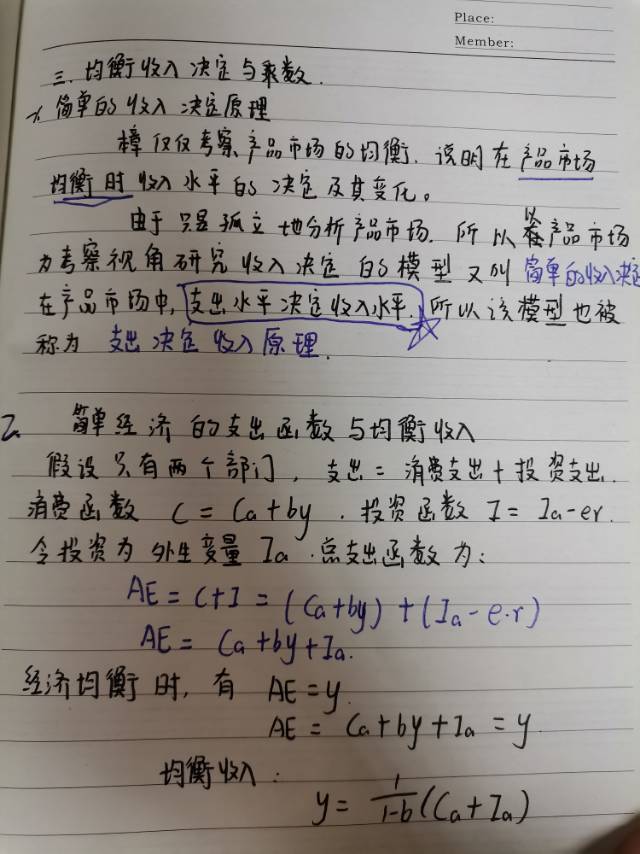 Place:
Member:
三. 均衡收入决定与乘数.
1. 简单的收入决定原理
仅仅考察产品市场的均衡. 说明在产品市场
均衡时收入水平的决定及其变化。
由于只是孤立地分析产品市场. 所以以产品市场
为考察视角研究收入决定的模型又叫简单的收入决定
在产品市场中, 支出水平决定收入水平. 所以该模型也被
称为 支出决定收入原理.
2. 简单经济的支出函数与均衡收入
假设只有两个部门, 支出=消费支出+投资支出.
消费函数 C=Ca+by. 投资函数 I=Ia-er.
令投资为外生变量Ia. 总支出函数为:
AE=C+I=(Ca+by)+(Ia-e·r)
AE=Ca+by+Ia.
经济均衡时, 有 AE=y.
AE=Ca+by+Ia=y.
均衡收入:
y=1/1-b(Ca+Ia)